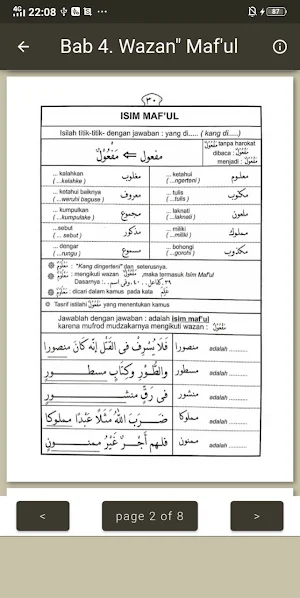 4G 22:08 87
Bab 4. Wazan" Maf'ul
٣٠
ISIM MAF'UL
Isilah titik-titik- dengan jawaban : yang di..... ( kang di.....)
مفعول ⇐ مَفْعُولٌ
tanpa harokat
dibaca : مَفْعُولٌ
menjadi : مَفْعُولٌ
... kalahkan
( ...kalahke )
مغلوب
... ketahui
( ...ngerteni )
معلوم
... ketahui baiknya
( ...weruhi baguse )
معروف
... tulis
( ...tulis )
مكتوب
... kumpulkan
( ...kumpulake )
مجموع
... laknati
( ...laknati )
ملعون
... sebut
( ...sebut )
مذكور
... miliki
( ...miliki )
مملوك
... dengar
( ...rungu )
مسموع
... bohongi
( ...gorohi )
مكذوب
: "Kang dingerteni" dan seterusnya.
: mengikuti wazan مَفْعُولٌ ,maka termasuk Isim Maf'ul
Dasarnya :
: dicari dalam kamus pada kata
Tasrif istilahi مَفْعُولٌ yang menentukan kamus
Jawablah dengan jawaban : adalah isim maf'ul
karena mufrod mudzakarnya mengikuti wazan : مَفْعُولٌ
فَلَا يُسْرِفْ فِى الْقَتْلِ إِنَّهُ كَانَ منصورا
منصورا adalah ..........
وَالطُّوْرِ وَكِتَابٍ مسطور
مسطور adalah ..........
فِى رَقٍّ منشور
منشور adalah ..........
ضَرَبَ اللهُ مَثَلًا عَبْدًا مملوكا
مملوكا adalah ..........
فلهم أَجْرٌ غَيْرُ ممنون
ممنون adalah ..........
<
page 2 of 8
>